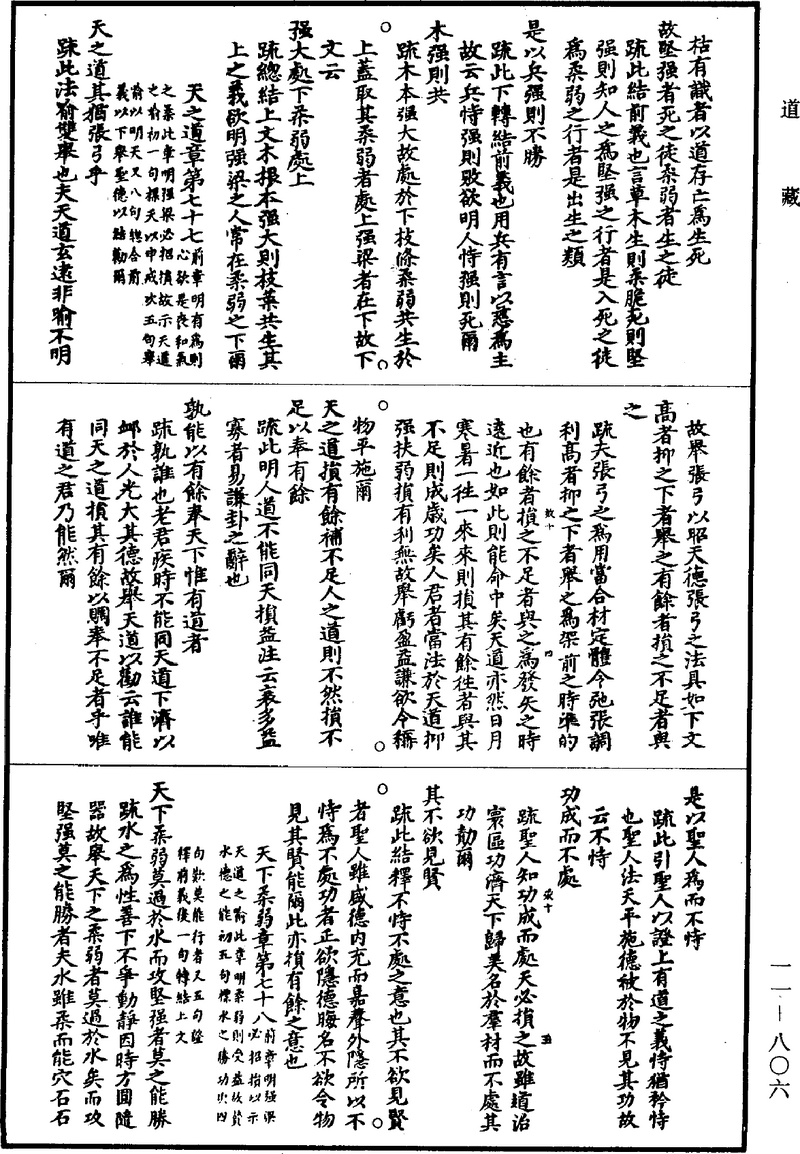 道藏
枯有識者以道存亡為生死
故堅强者死之徒柔弱者生之徒
疏此結前義也言草木生則柔脆死則堅
强則知人之為堅强之行者是入死之徒
為柔弱之行者是出生之類
是以兵强則不勝
疏此下轉結前義也用兵有言以慈為主
故云兵恃强則敗欲明人恃强則死爾
木强則共
疏木本强大故處於下枝條柔弱共生於
上蓋取其柔弱者處上强梁者在下故下
文云
强大處下柔弱處上
疏總結上文木根本强大則枝葉共生其
上之義欲明强梁之人常在柔弱之下爾
天之道章第七十七
前章明有為則心欲是喪和氣
之柔此章明强梁必招損故示天道
之前初一句標天以申戒次五句舉
前以明天又八句總合前
義以下舉聖德以結勸爾
天之道其猶張弓乎
疏此法喻雙舉也夫天道玄遠非喻不明
故舉張弓以昭天德張弓之法具如下文
高者抑之下者舉之有餘者損之不足者與
之
疏夫張弓之為用當合材定體令弛張調
利高者抑之下者舉之為架前之時準的
也有餘者損之不足者與之為發矢之時
遠近也如此則能命中矣天道亦然日月
寒暑一往一來來則損其有餘往者與其
不足則成歲功矣人君者當法於天道抑
强扶弱損有利無故舉虧盈益謙欲令稱
物平施爾
天之道損有餘補不足人之道則不然損不
足以奉有餘
疏此明人道不能同天損益注云裒多益
寡者易謙卦之辭也
孰能以有餘奉天下惟有道者
疏孰誰也老君疾時不能同天道下濟以
卹於人光大其德故舉天道以勸云誰能
同天之道損其有餘以賙奉不足者乎唯
有道之君乃能然爾
是以聖人為而不恃
疏此引聖人以證上有道之義恃猶矜恃
也聖人法天平施德被於物不見其功故
云不恃
功成而不處
疏聖人知功成而處天必損之故雖道治
寰區功濟天下歸美名於羣材而不處其
功勣爾
其不欲見賢
疏此結釋不恃不處之意也其不欲見賢
者聖人雖盛德內充而嘉聲外隱所以不
恃為不處功者正欲隱德晦名不欲令物
見其賢能爾此亦損有餘之意也
天下柔弱章第七十八
前章明强梁必招損以示
天道之前此章明柔弱則受益故贊
水德之能初五句標水之勝功次四
句歎莫能行者又五句證
釋前義後一句轉結上文
天下柔弱莫過於水而攻堅强者莫之能勝
疏水之為性善下不爭動靜因時方圓隨
器故舉天下之柔弱者莫過於水矣而攻
堅强莫之能勝者夫水雖柔而能穴石石
一一—八〇六